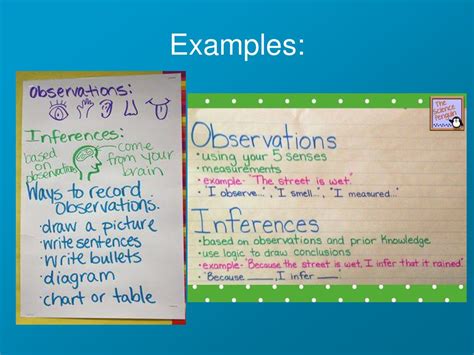 Examples:
Observations:
Inferences:
based
on
observations
come
from your
brain
Ways to record
Observations.
·draw a picture
·write sentences
·Write bullets
·diagram
·chart or table
The
Science
Penguin
Observations
• using your 5 senses
• measurements
• example- "The street is wet."
"I observe...", "I smell...", "I measured..."
Inferences
• based on observations and prior knowledge
• use logic to draw conclusions
• example- "Because the street is wet, I infer that it rained"
"Because ____, I infer ____."